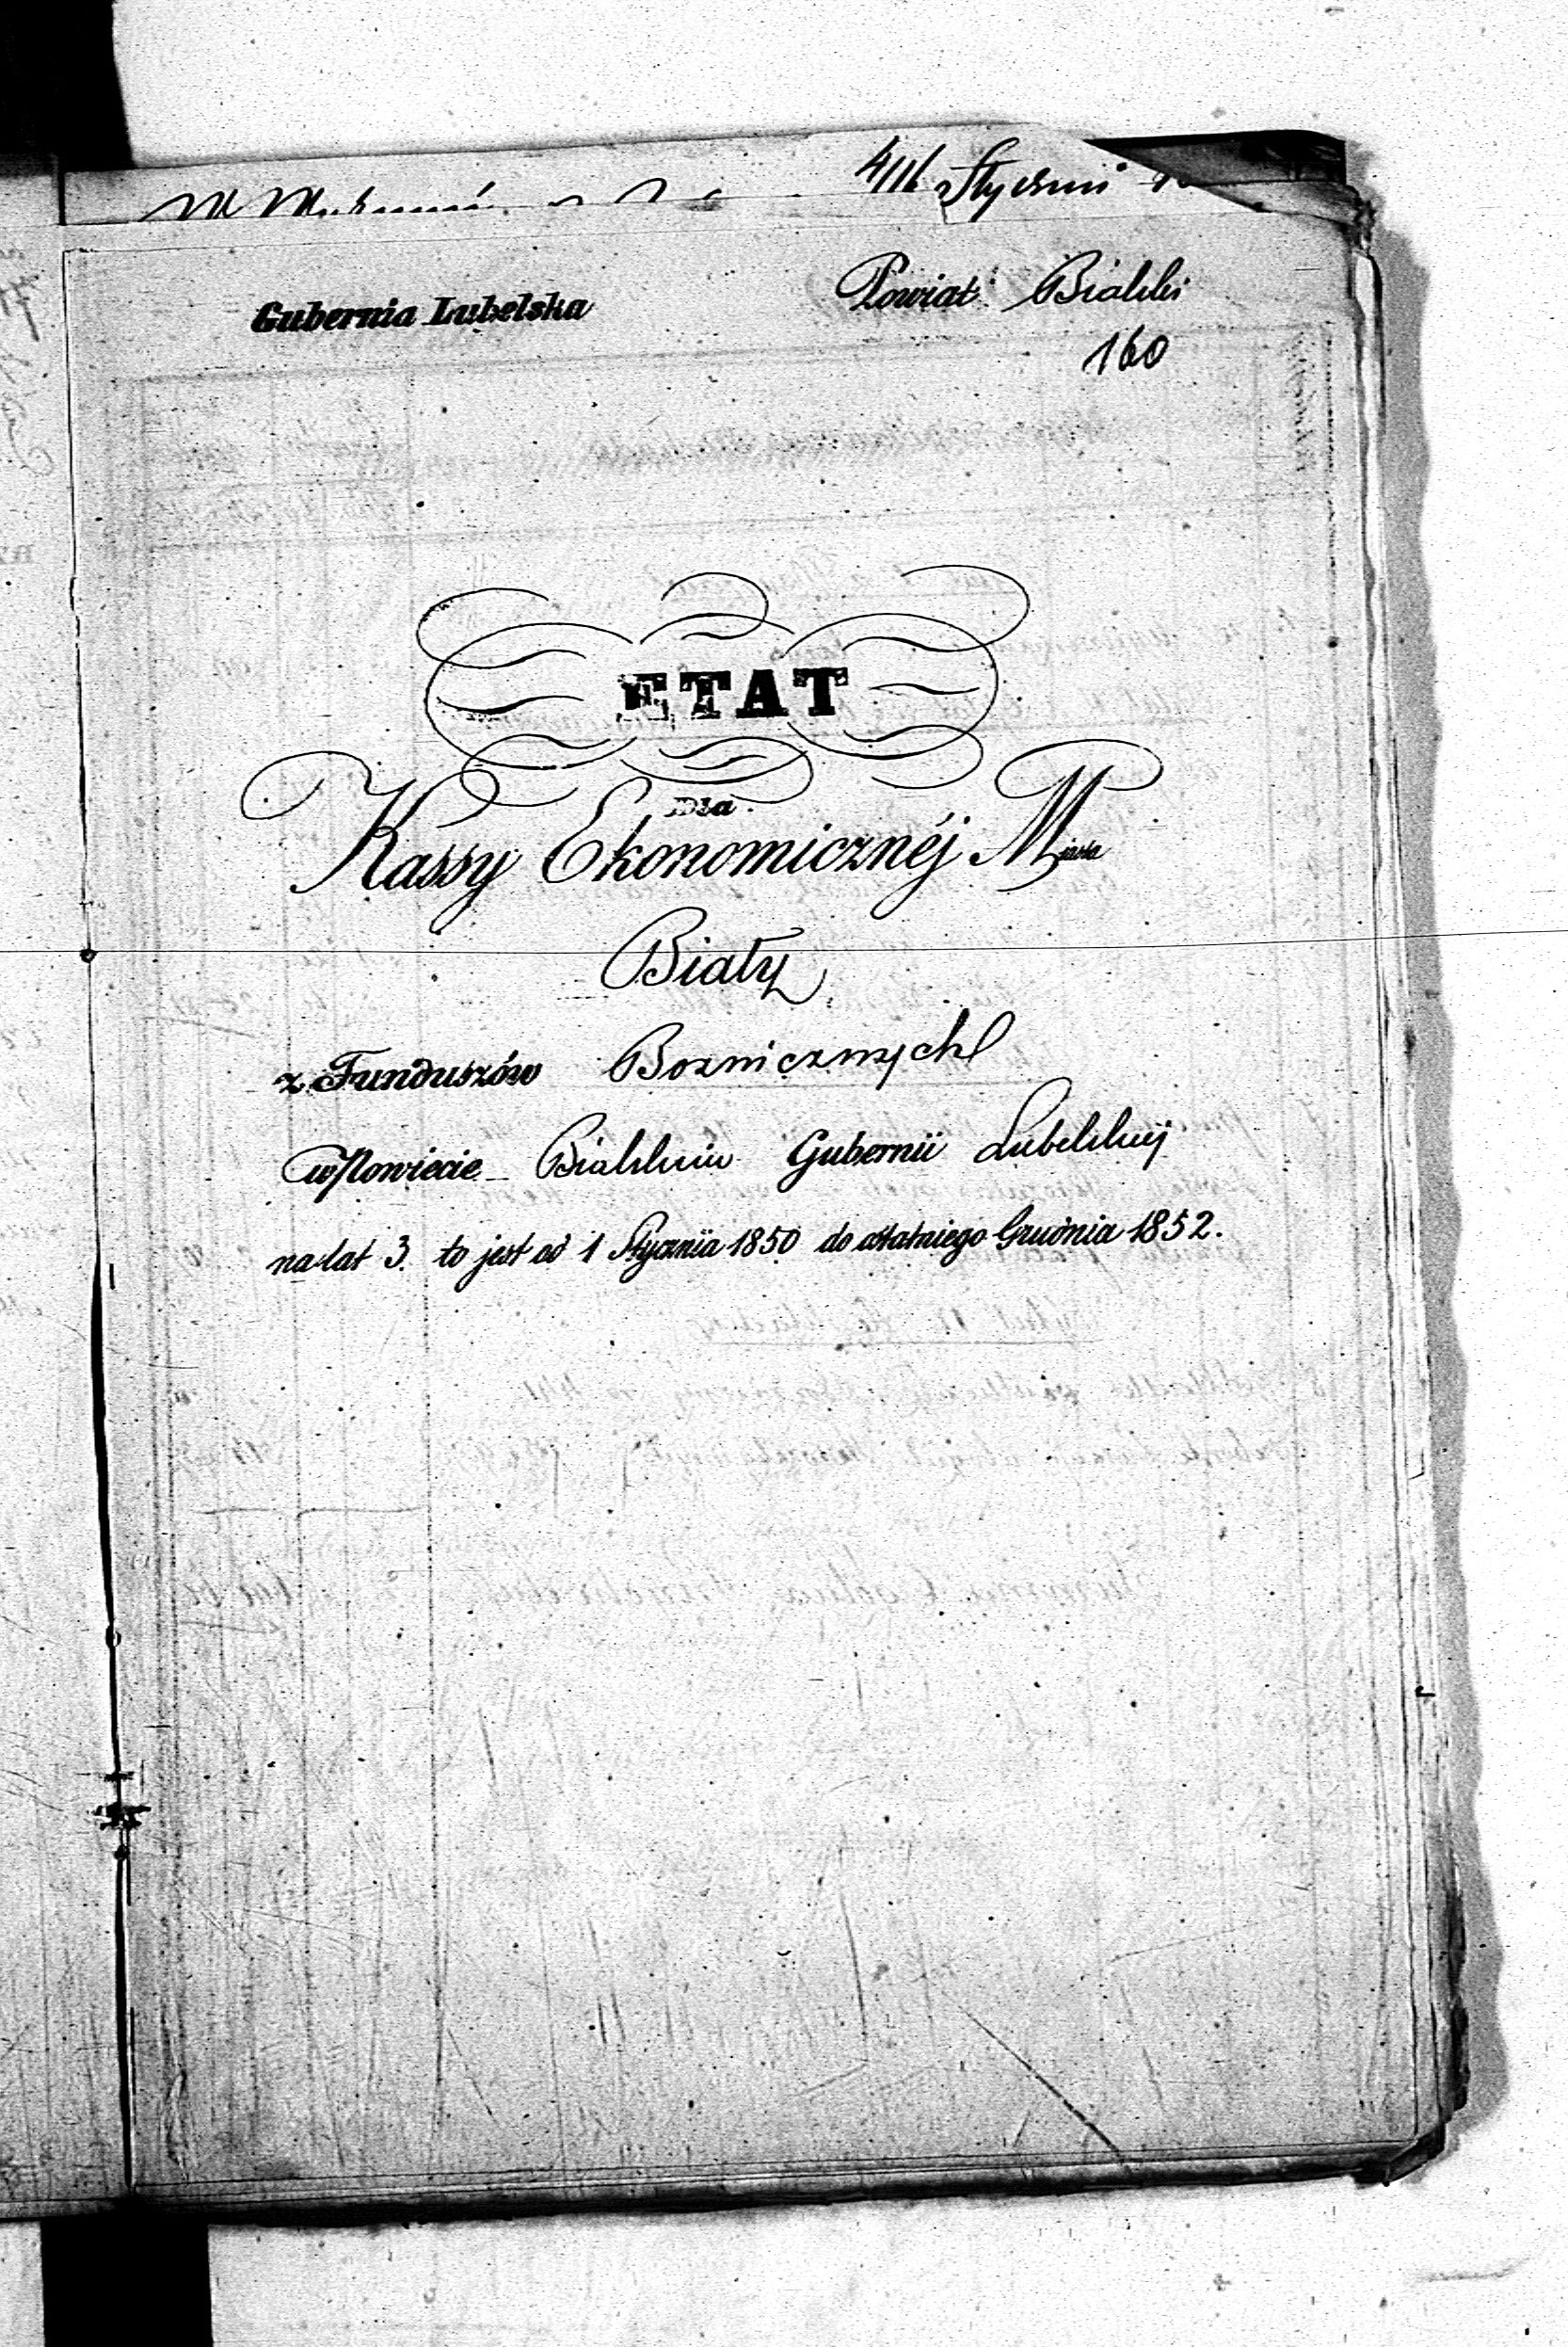 4/16 Stycznia
Gubernia Lubelska
Powiat Bialski
160
ETAT
Dla
Kassy Ekonomicznéj Miasta
Biały
z Funduszów Boznicznych
w Powiecie Bialskim Gubernii Lubelskiej
na lat 3. to jest od 1 Stycznia 1850 do ostatniego Grudnia 1852.